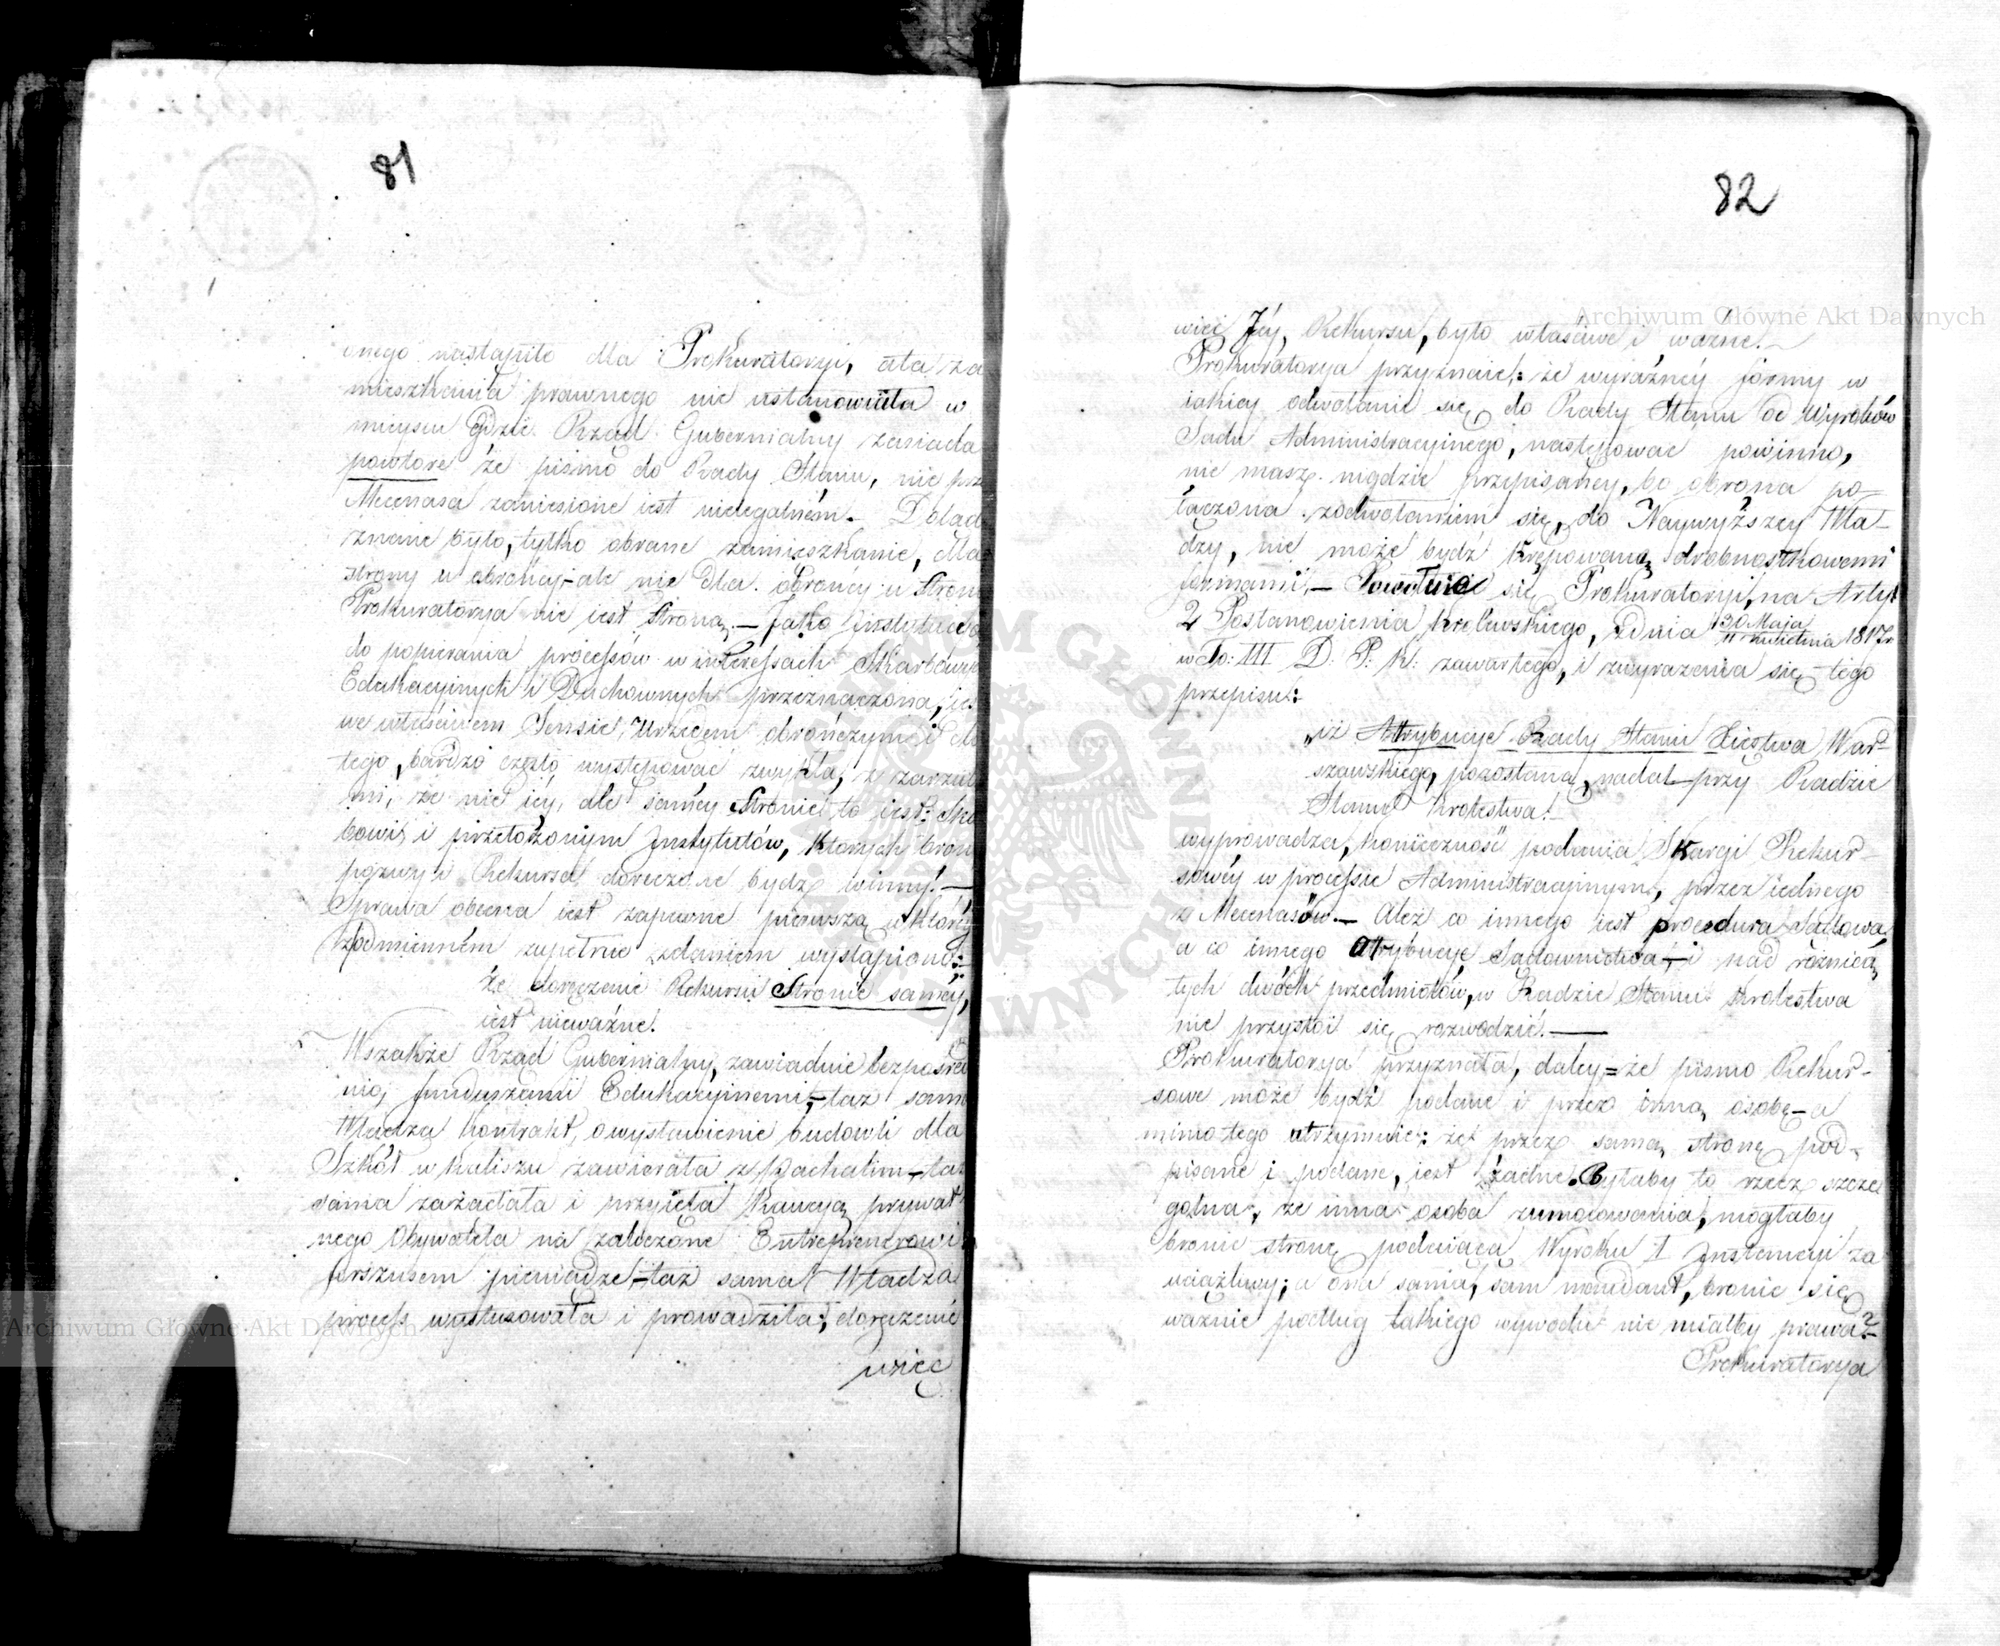 81
onego nastąpiło dla Prokuratoryi, ata za
mieszkania prawnego nie ustanowiła w
mieyscu gdzie Rząd Gubernialny zasiada
powtore że pismo do Rady Stanu, nie prz
Mecenasa zaniesione iest nielegalném. Dotąd
znane było, tylko obrane zamieszkanie, dla
strony u obrońcy, ale nie dla obrońcy u Strony
Prokuratorya nie iest Stroną. — Jako instytucya
do popierania processów w interessach Skarbowych
Edukacyinych i Duchownych przeznaczona, ies
we właściwem Sensie, Urzędem obrończym i dla
tego, bardzo często występować zwykła, z zarzuta
mi, że nie iéy, ale saméy Stronie to iest: Ska
bowi, i przełożonym Instytutów, których broni
pozwy i Rekursa doręczane bydź winny. —
Sprawa obecna iest zapewne pierwszą w któréy
z odmienném zupełnie zdaniem wystąpiono:
że doręczenie Rekursu Stronie saméy,
iest nieważne.
Wszakże Rząd Gubernialny, zawiaduie bezpośred
nio, funduszami Edukacyinemi, — taż sama
Władza Kontrakt, o wystawienie budowli dla
Szkół w Kaliszu zawierała z Machalim, — ta
sama zażądała i przyięła Kaucyą prywat
nego Obywatela na zaliczone Entreprenerowi
forszusem pieniądze, — taż sama Władza
process wystosowała i prowadziła; doręczenie
więc
82
więc Jéy, Rekursu, było właściwe i ważne. —
Prokuratorya przyznaie: że wyraźnéy formy w
iakiey odwołanie się do Rady Stanu od Wyroków
Sądu Administracyinego, następować powinno,
nie masz nigdzie przepisanéy, bo obrona po-
łączona z odwołaniem się, do Naywyższey Wła-
dzy, nie może bydź krępowaną drobnostkowemi
formami. — Powołuie się Prokuratoryi, na Artyk
2 Postanowienia Królewskiego, z dnia 30 Maja / 11 Kwietnia 1817 r
w To: III D. P. K. zawartego, i z wyrażenia się tego
przepisu:
„iż Attrybucye Rady Stanu Xięstwa War-
szawskiego, pozostaną nadal przy Radzie
Stanu Królestwa!
wyprowadza, konieczność podania Skargi Rekur-
sowéy w processie Administracyinym, przez iednego
z Mecenasów. — Ależ co innego iest procedura Sądowa,
a co innego Attrybucye Sądownictwa, — i nad różnicą
tych dwóch przedmiotów, w Radzie Stanu Królestwa
nie przystoi się rozwodzić. —
Prokuratorya przyznała, daley = że pismo Rekur-
sowe może bydź podane i przez inną osobę — a
mimo tego utrzymuie: że przez samą stronę pod-
pisane i podane, iest żadne. Byłaby to rzecz szcze
gólna, że inna osoba umocowania, mogłaby
bronić stronę podaiącą Wyroku I Instancyi za
uciążliwy; a ona sama, sam mandant, bronić się
ważnie podług takiego wywodu nie miałby prawa? —
Prokuratorya
Archiwum Główne Akt Dawnych
Archiwum Główne Akt Dawnych